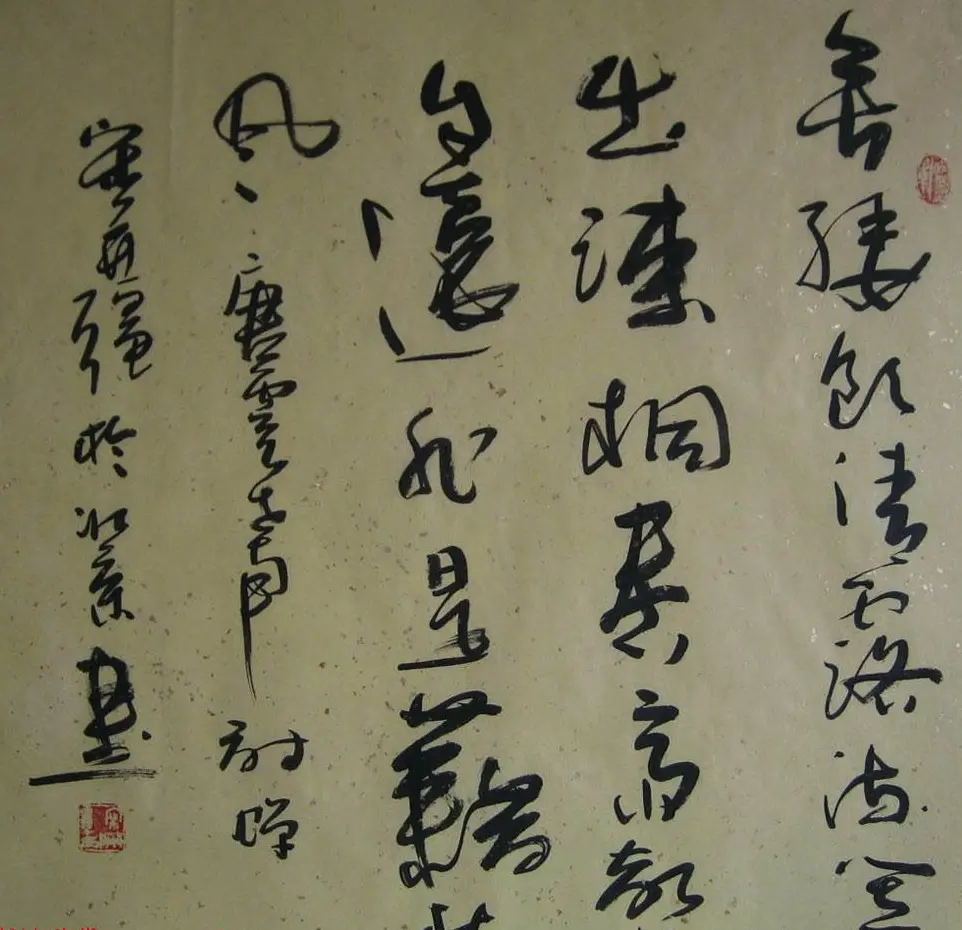 垂緌飲清露流響
出疎桐居高聲
自遠非是藉
風唐虞世南詩蟬
於北京書